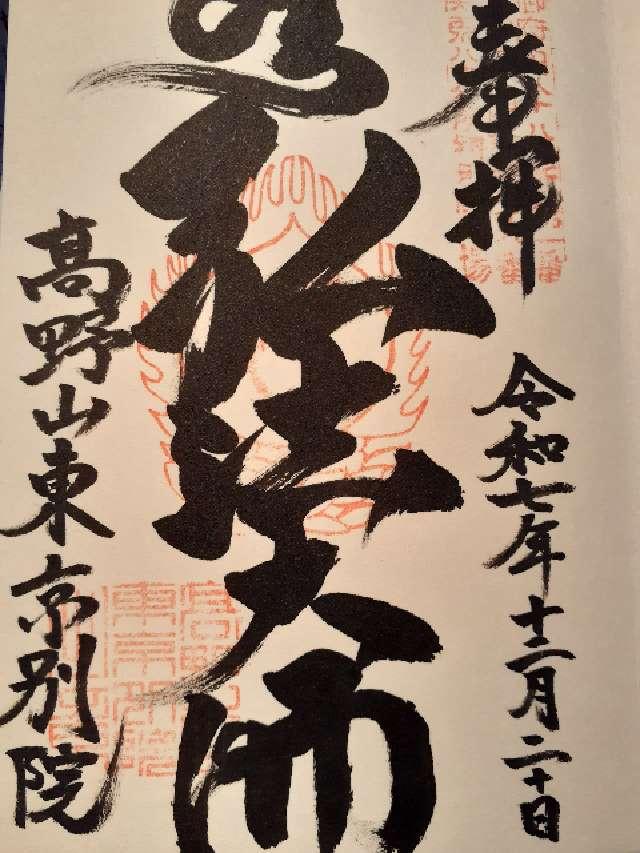 奉拝
令和七年十二月二十日
弘法大師
高野山東京別院